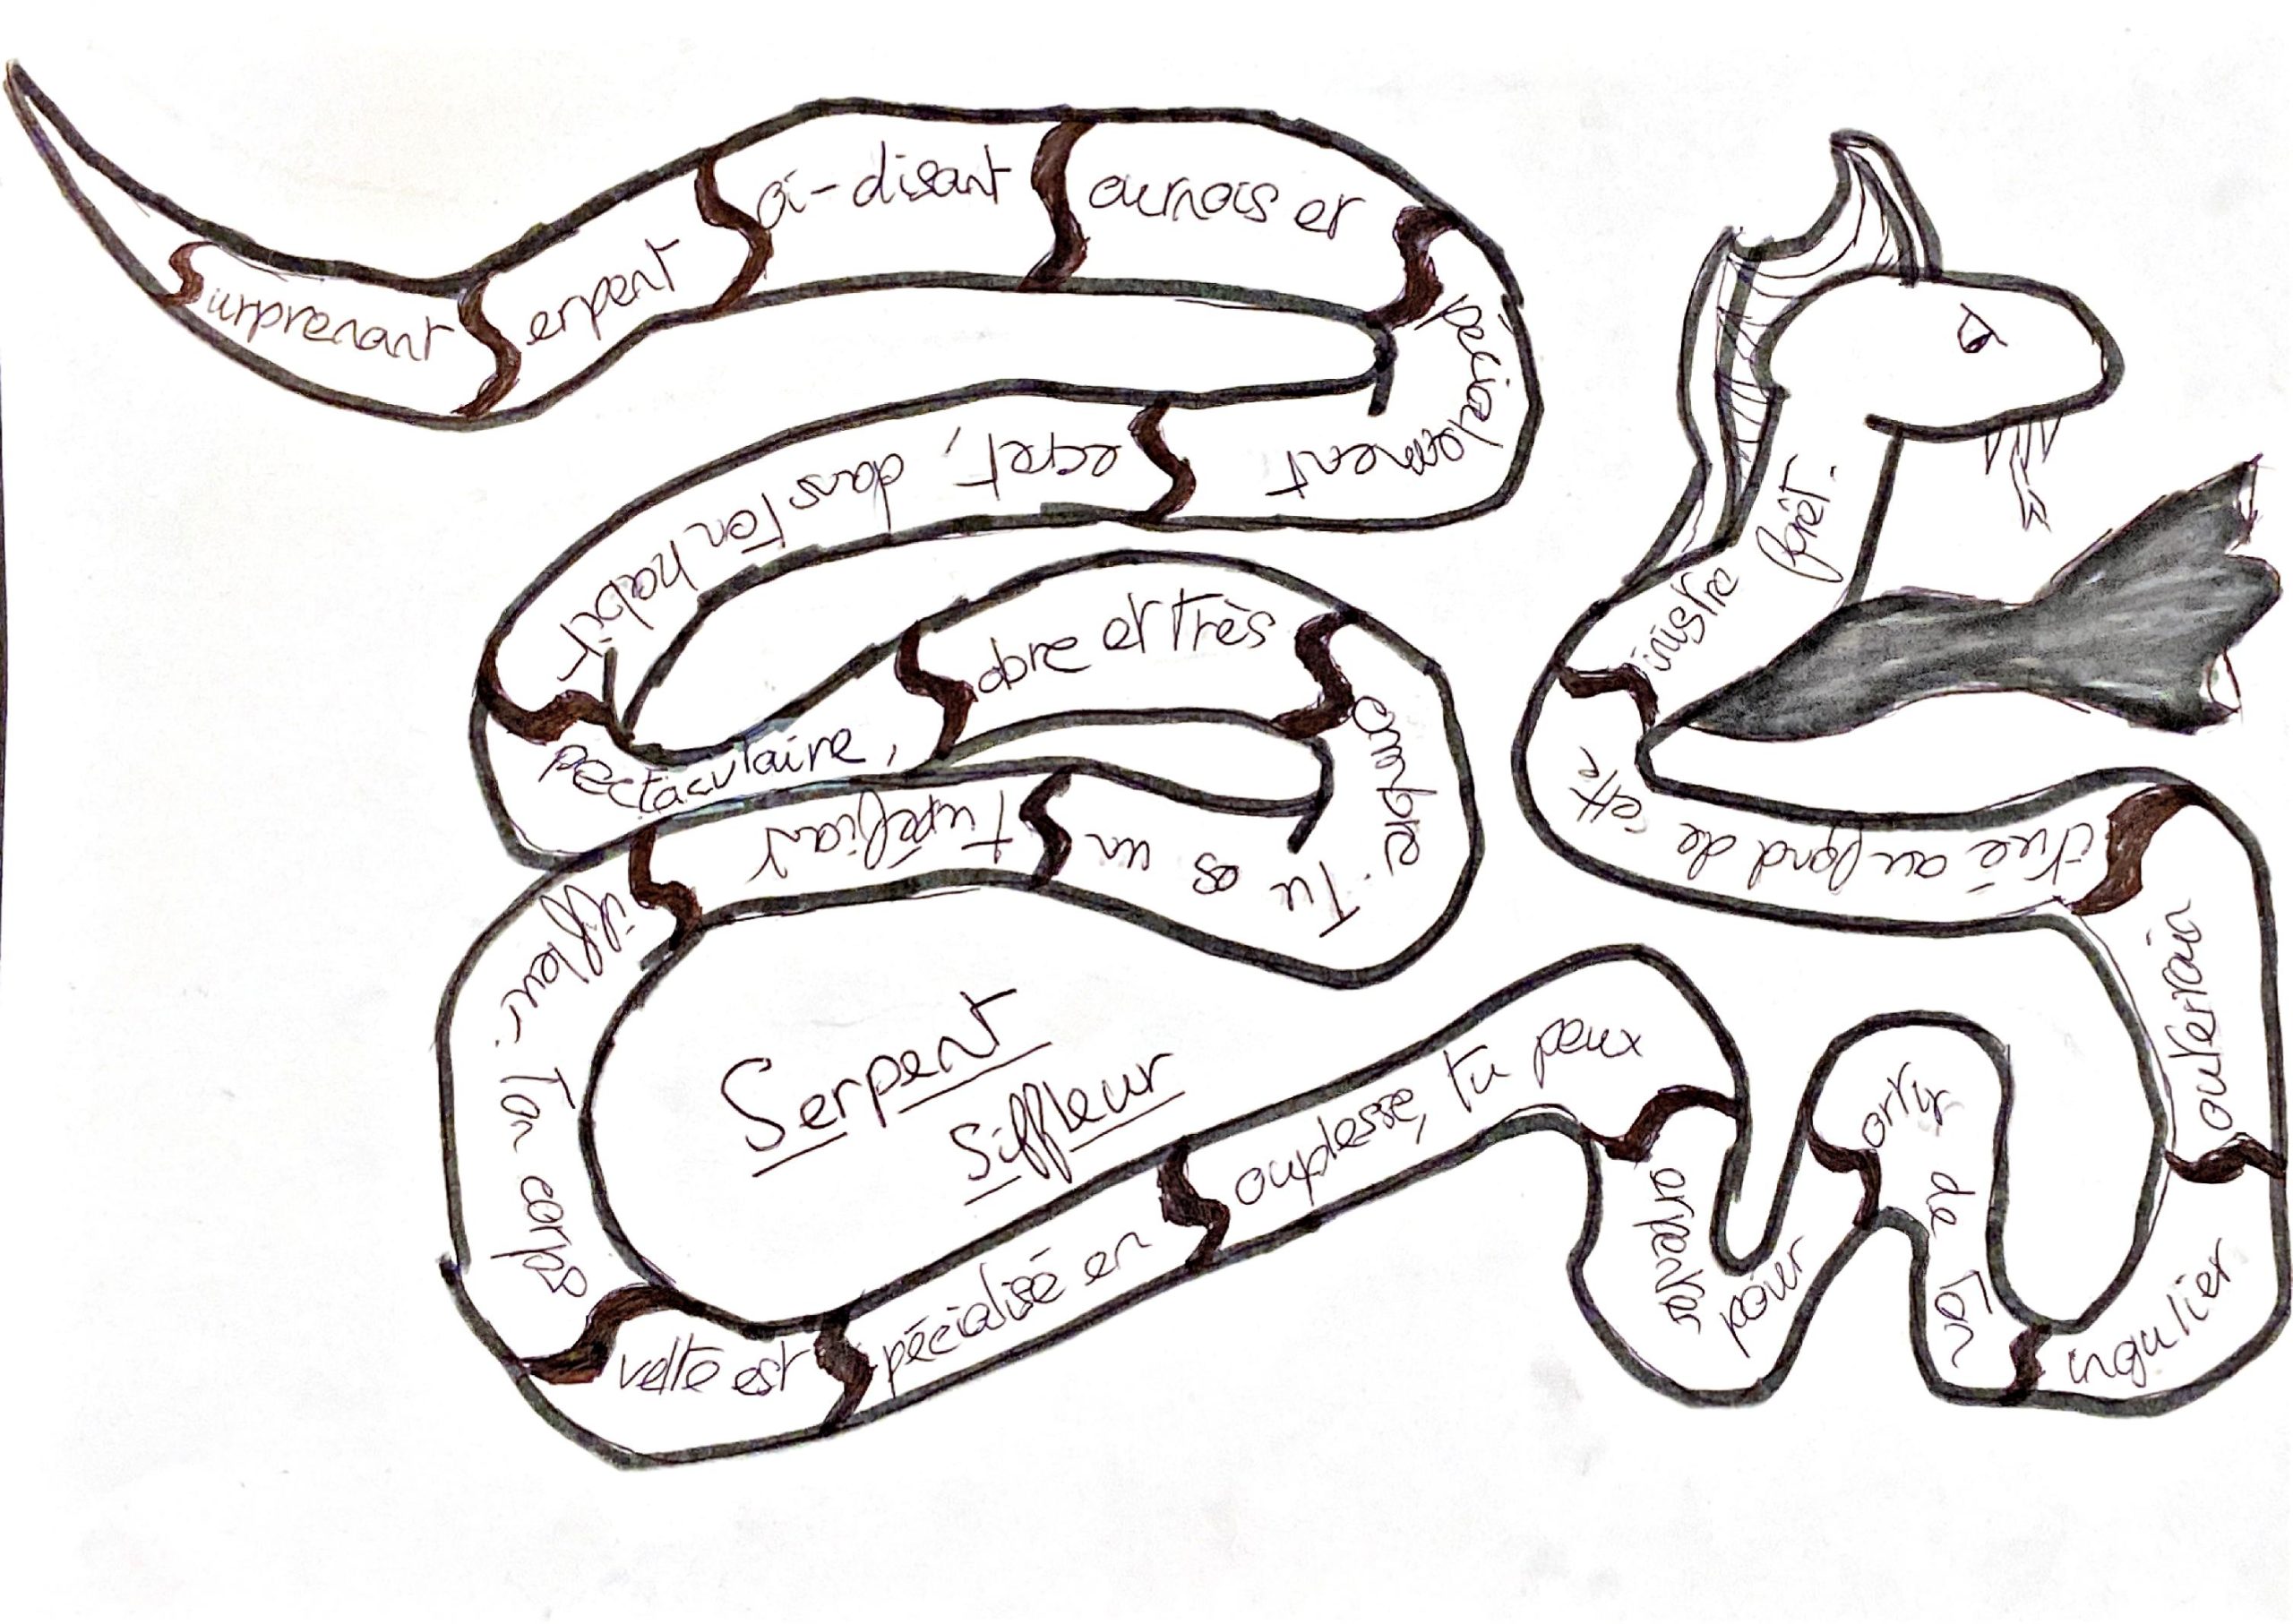 Surprenant
Serpent
Soi-disant
Sournois et
Specialement
Secret, dans ton habit
Spectaculaire,
Sobre et très
Sombre. Tu es un
Stupéfiant
Siffleur. Ton corps
Svelte est
Spécialisé en
Souplesse, tu peux
Serpenter pour
Sortir de ton
Singulier
Souterrain
Situé au fond de cette
Sinistre forêt.
Serpent
Siffleur